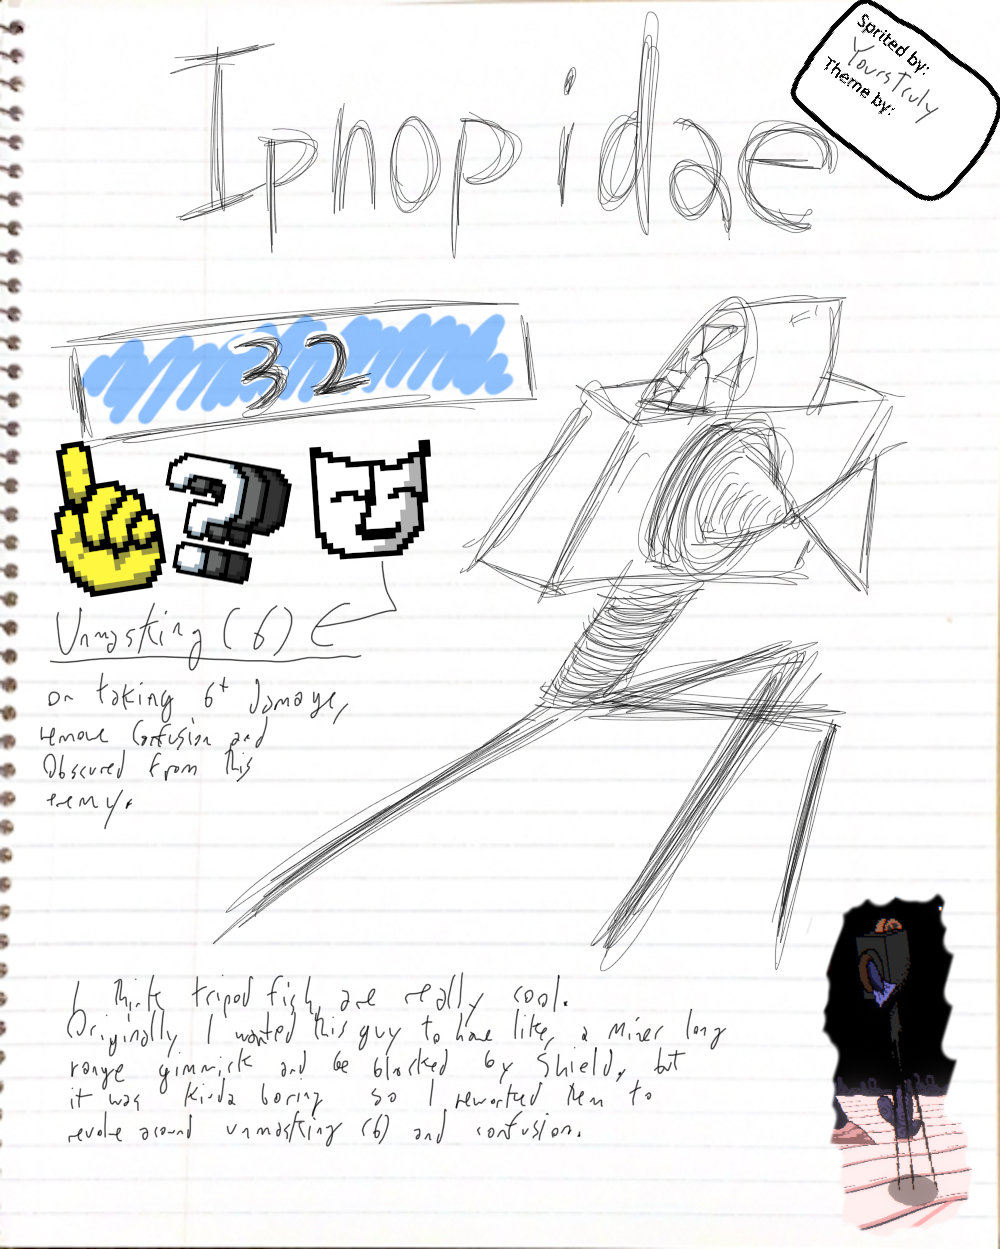 Ipnopidae
Sprited by:
Yours Truly
Theme by:
32
?
Unmasking (6)
on taking 6+ damage,
remove Confusion and
Obscured from this
enemy.
I think tripod fish are really cool.
Originally I wanted this guy to have like, a Miner long
range gimmick and be blocked by Shield, but
it was kinda boring so I reworked them to
revolve around unmasking (6) and confusion.